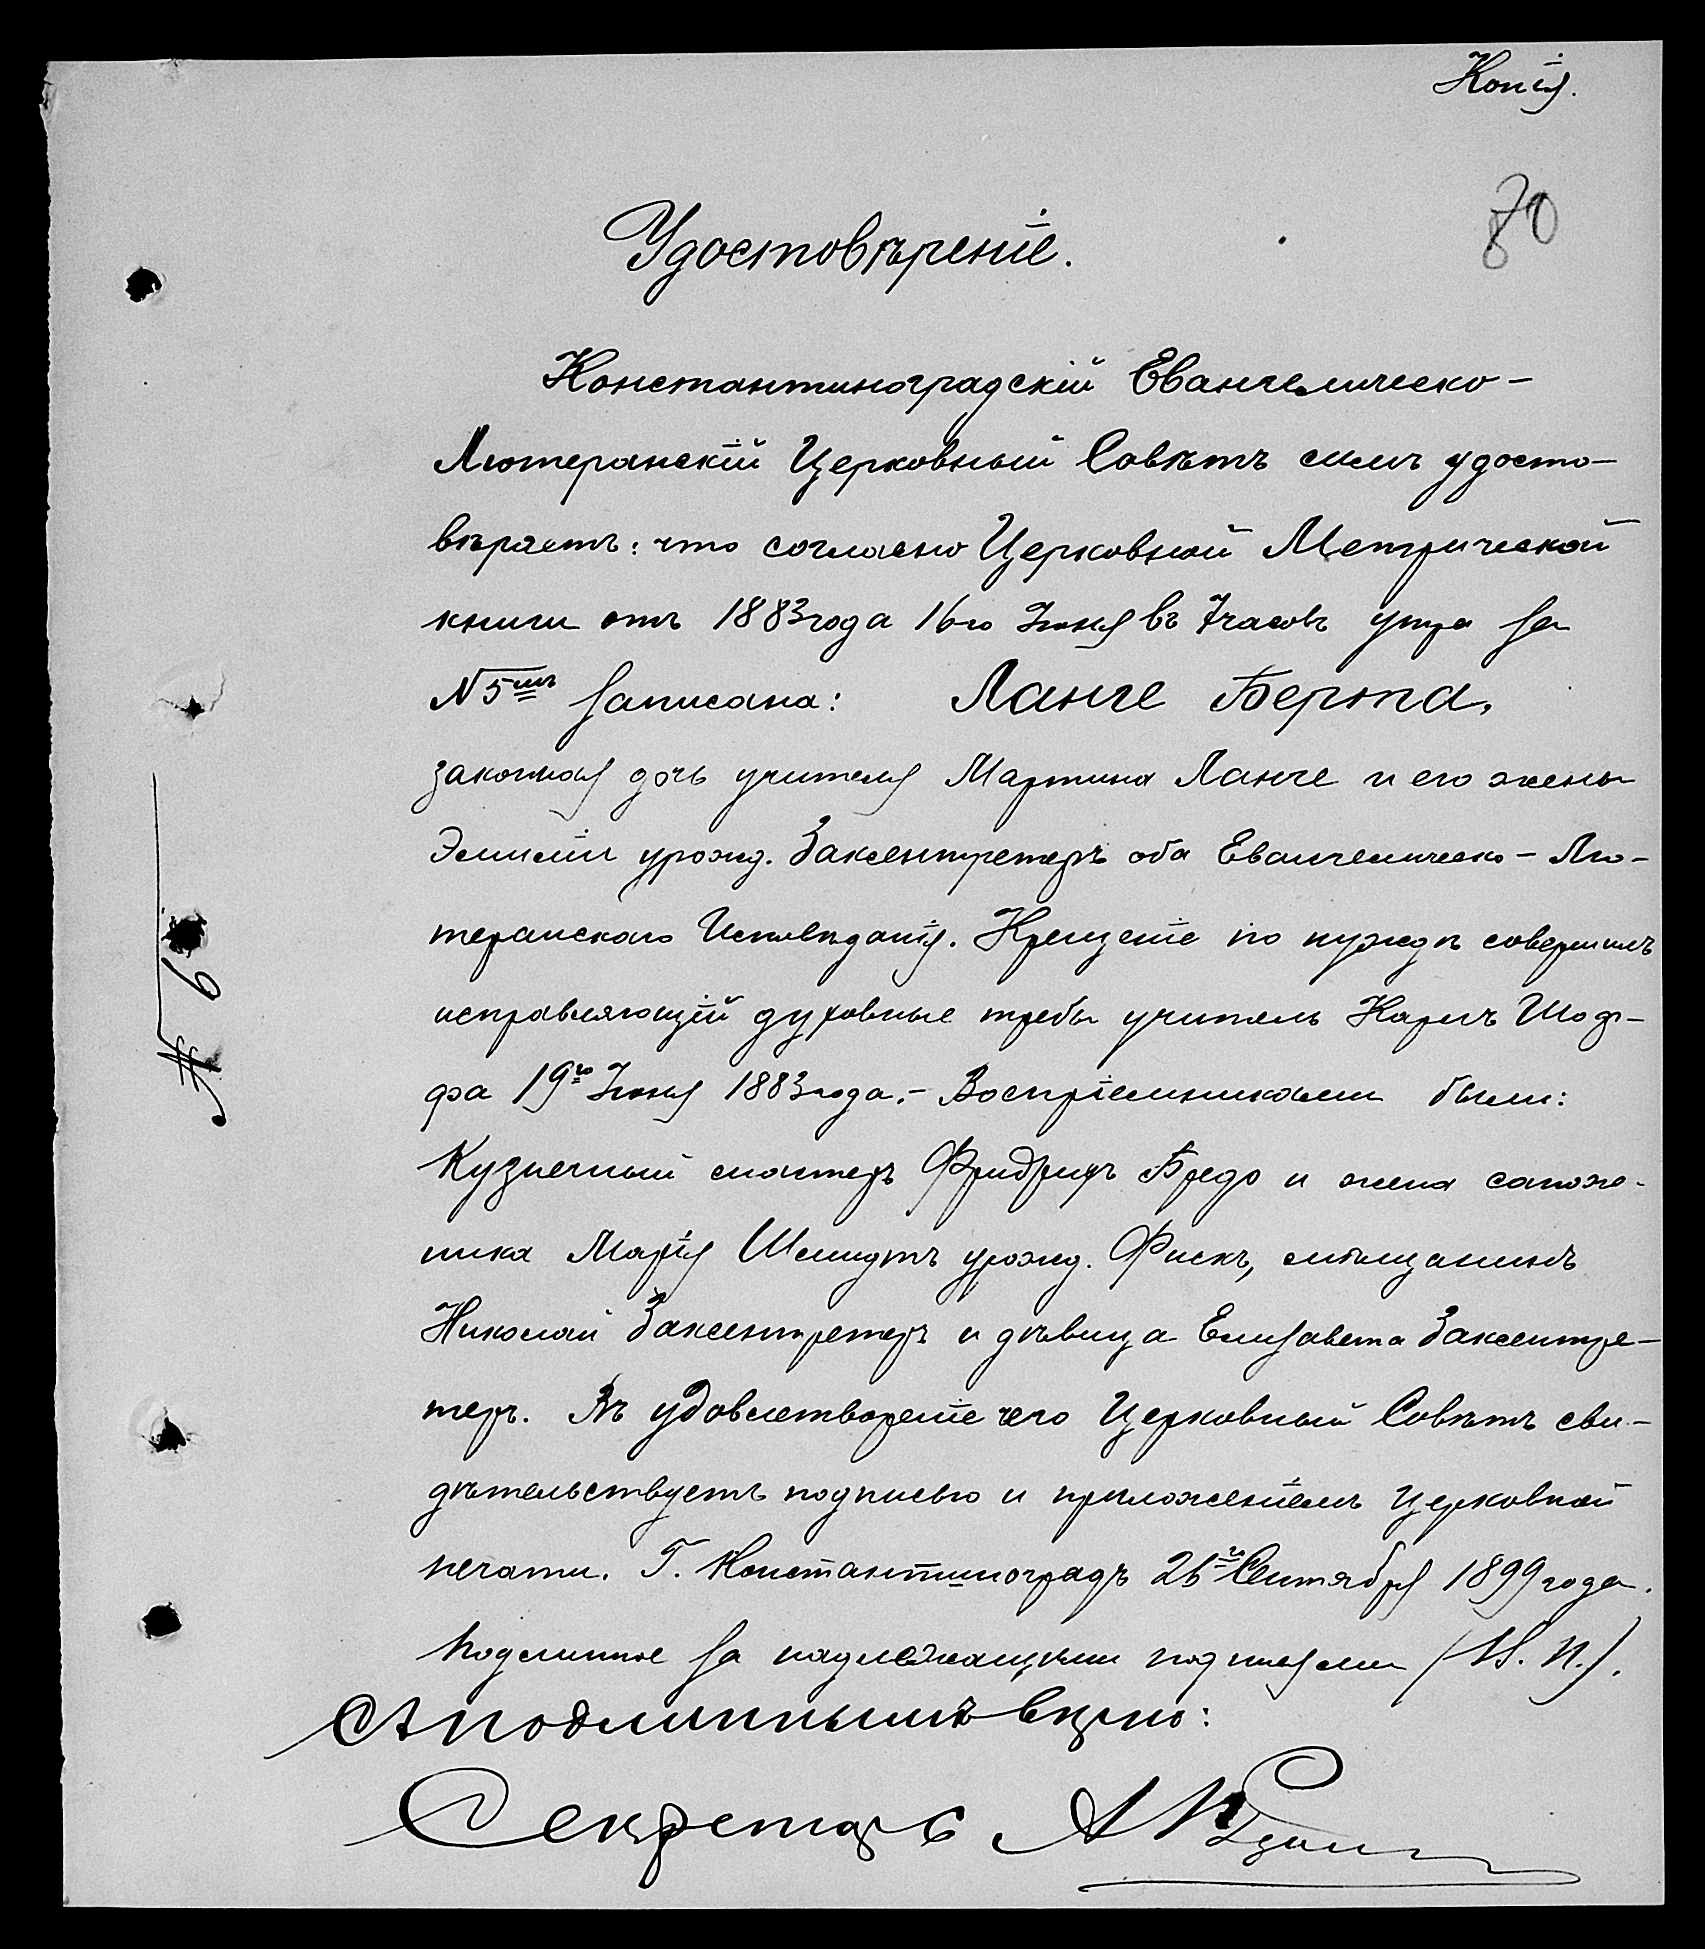 Копія.
70
Удостовѣреніе.
Константиноградскій Евангелическо-
Лютеранскій Церковный Совѣтъ симъ удосто-
вѣряетъ: что согласно Церковной Метрической
книги отъ 1883 года 16го Іюня въ 7 часовъ утра за
№ 5мъ записана: Ланге Берта,
законная дочь учителя Мартина Ланге и его жены
Эмиліи урожд. Заксентретеръ оба Евангелическо-Лю-
теранскаго Исповѣданія. Крещеніе по нуждѣ совершилъ
исправляющій духовные требы учитель Карлъ Шаф-
фа 19го Іюня 1883 года.- Воспріемниками были:
Кузнечный мастеръ Фридрихъ Бредо и жена сапож-
ника Марія Шмидтъ урожд. Фискъ, мѣщанинъ
Николай Заксентретеръ и дѣвица Елизавета Заксентре-
теръ. Въ удовлетвореніе чего Церковный Совѣтъ сви-
дѣтельствуетъ подписью и приложеніемъ церковной
печати. Г. Константиноградъ 26го Сентября 1899 года.
Подлинное за надлежащими подписями (М. П.).
Съ подлиннымъ вѣрно:
Секретарь А
№ 6